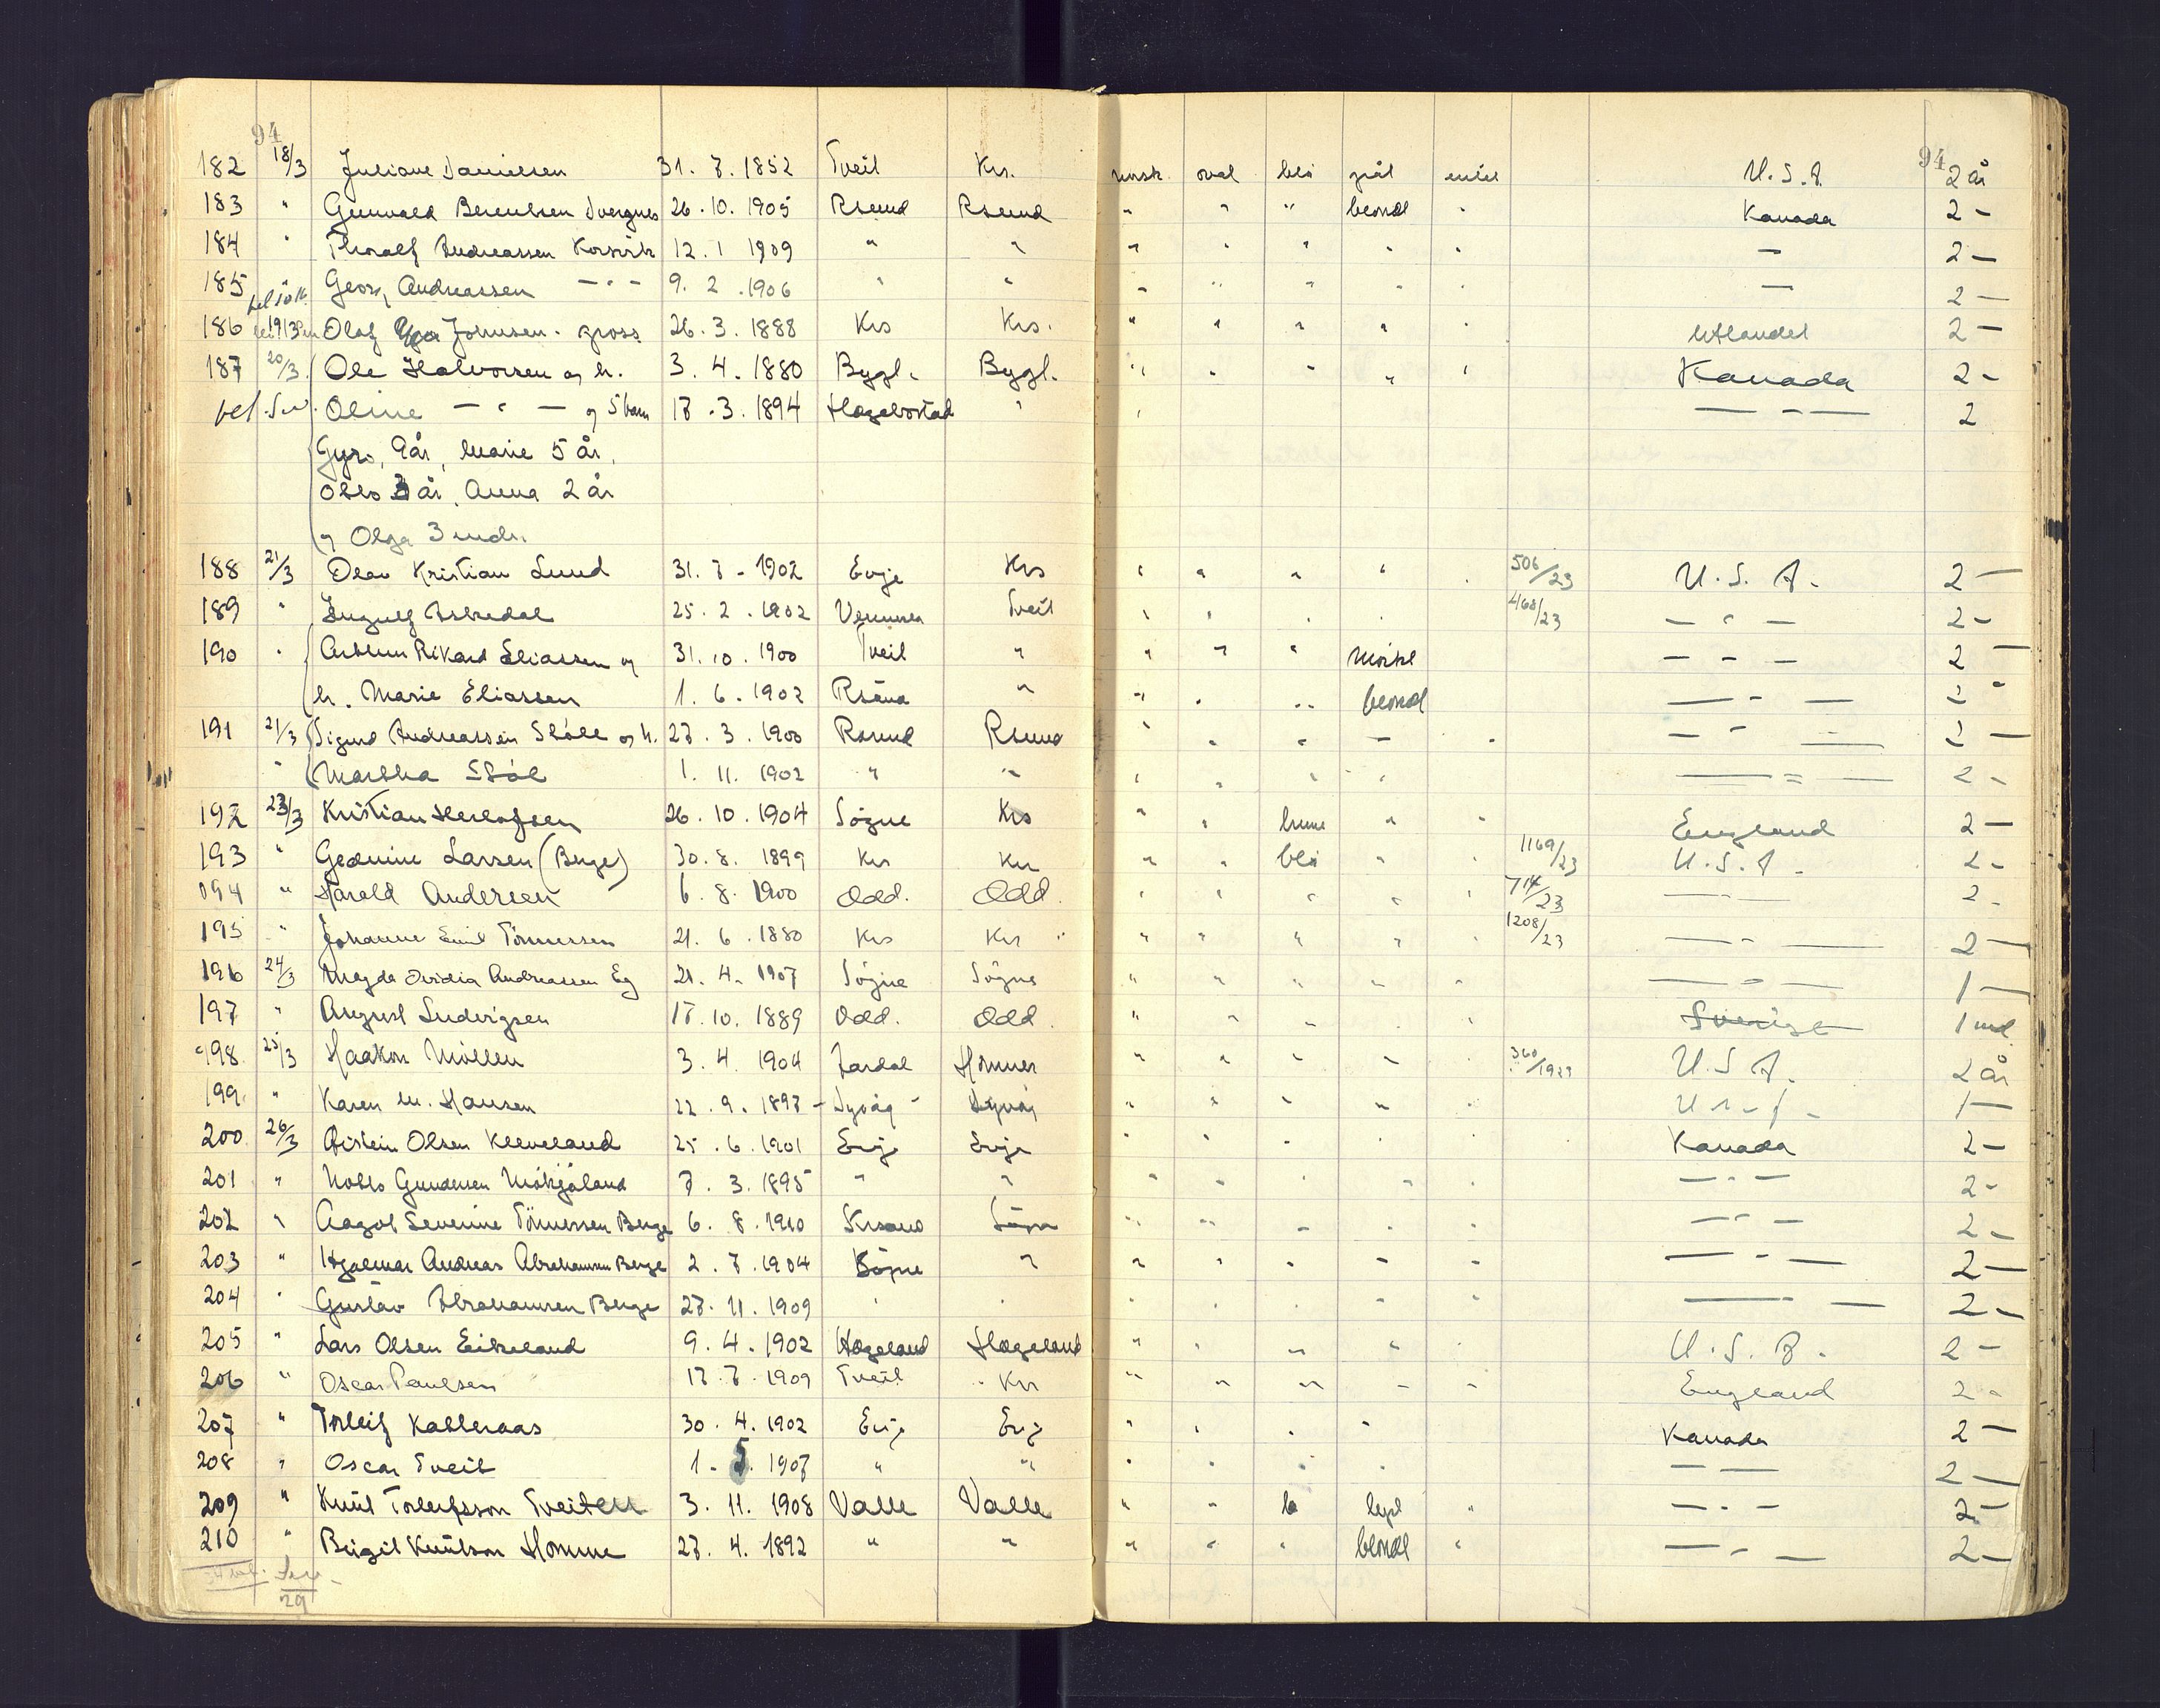 94 94
182 18/3 Juliane Danielsen 31. 7. 1852 Tveit Krs. norsk oval blå gråt enkel U.S.A. 2 år
183 " Gunvald Berentsen 26. 10. 1905 Rsund Rsund " " " blond " Kanada 2 -
184 " Thoralf Andreassen Korsvik 12. 1 1909 " " " " " " " — 2 -
185 " Georg Andreassen - " - 9. 2. 1906 " " " " " " " — 2 -
186 Olaf Johnsen. gross. 26. 3. 1888 Krs Krs. " " " " " Utlandet 2 -
187 20/3 Ole Halvorsen og h. 3. 4. 1880 Bygl. Bygl. " " " " " Kanada 2 -
Oline — " — og 5 barn 17. 3. 1894 Hægebostad " " — " — 2
Gyro, 9 år, Marie 5 år,
Otto 3 år, Anna 2 år
og Olga 3 mdr.
188 21/3 Olav Kristian Lund 31. 7 - 1902 Evje Krs " " " " " 506/23 U.S.A. 2 -
189 " Ingulf 25. 2. 1902 Vennesla Tveit " " " " 468/23 — " — 2 -
190 " Arthur Rikard Eliassen og 31. 10. 1900 Tveit " " " " mørkt — " — 2 -
h. Marie Eliassen 1. 6. 1902 Rsand " " " " blond — " — 2 "
191 21/3 Sigurd Andreassen Støle og h. 27. 3. 1900 Rsund Rsund " " " — " — " — 2 -
" Martha Støl 1. 11. 1902 " " " " " " — " — 2 -
192 23/3 Kristian Herlofsen 26. 10. 1904 Søgne Krs " " brune " " England 2 -
193 " Gedmine Larsen (Berge) 30. 8. 1899 Krs Krs " " blå " " 1169/23 U.S.A. 2 -
194 " Harald Andersen 6. 8. 1900 Odd. Odd. " " " " " 714/23 — " — 2 -
195 " Johanne Emil Tønnessen 21. 6. 1880 Krs Krs " " " " " 1208/23 — " — 2 -
196 24/3 Magda Ovidia Andreassen Eg 21. 4. 1907 Søgne Søgne " " " " " — " — 1 -
197 " August Ludvigsen 17. 10. 1889 Odd. Odd. " " " " " Sverige 1 md
198 25/3 Haakon Møllen 3. 4. 1904 Hornnes " " " " " 360/1923 U.S.A. 2 år
199. " Karen M. Hansen 22. 9. 1897 - " " " " " 1 -
200 26/3 Øistein Olsen Kleveland 25. 6. 1901 Evje Evje " " " " " Kanada 2 -
201 " Gundersen 7. 3. 1895 " " " " " " " — " — 2 -
202 " Aagot Severine Tønnessen Berge 6. 8. 1910 Krsand Søgne " " " " " — " — 2 -
203 " Hjalmar Andreas Abrahamsen Berge 2. 7. 1904 Søgne " " " " " " — " — 2 -
204 " Gustav Abrahamsen Berge 27. 11. 1909 " " " " " " " — " — 2 -
205 " Lars Olsen Eikeland 9. 4. 1902 Hægeland Hægeland " " " " " U.S.A. 2 -
206 " Oscar Paulsen 17. 7. 1909 Tveit Krs " " " " " England 2 -
207 " Torleif Katteraas 30. 4. 1902 Evje Evje " " " " Kanada 2 -
208 " Oscar Tveit 1. 5. 1907 " " " " " " — " — 2 -
209 " Knut Torleifsson Tveiten 3. 11. 1908 Valle Valle " " " " — " — 2 -
210 " Birgit Knutson Homme 27. 4. 1892 " " " " " blondt " — " — 2 -
29